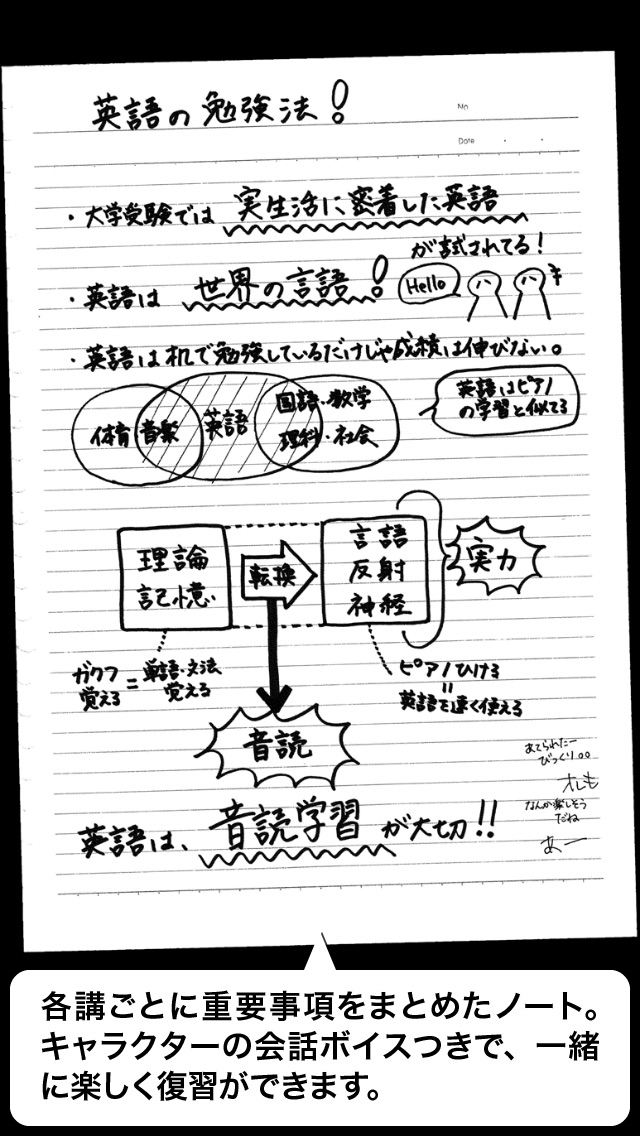 英語の勉強法!
No
Date
・大学受験では 実生活に密着した英語
が試されてる!
・英語は 世界の言語!
Hello
・英語は机で勉強しているだけじゃ成績は伸びない。
体育 音楽 英語 国語・数学
理科・社会
英語はピアノ
の学習と似てる
理論
記憶
転換
言語
反射
神経
実力
ガクフ
覚える
=
単語・文法
覚える
ピアノひける
=
英語を速く使える
音読
あてられたー
びっくり。。
オレも
なんか楽しそう
だね
あー
英語は、音読学習が大切!!
各講ごとに重要事項をまとめたノート。
キャラクターの会話ボイスつきで、一緒
に楽しく復習ができます。